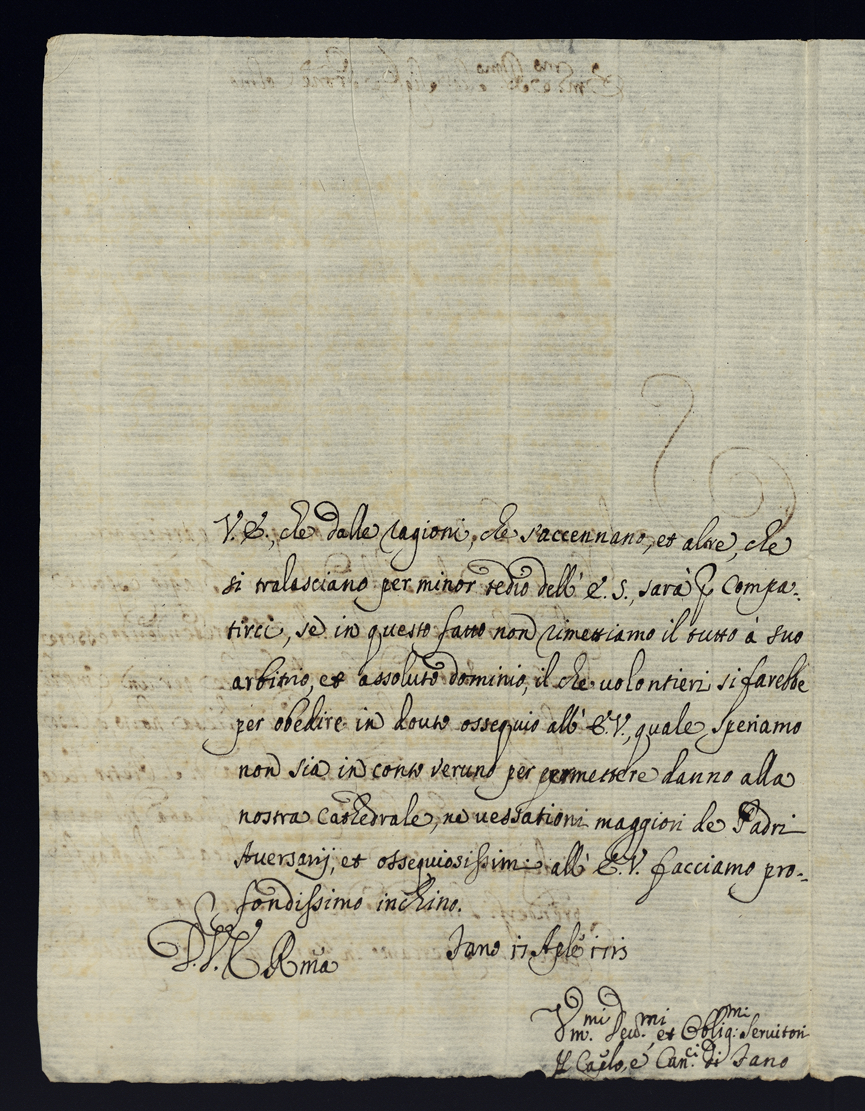 V. E., che dalle ragioni, che s'accennano, et altre, che
si tralasciano per minor tedio dell' E. S., sarà p compa-
tirci, se in questo fatto non rimettiamo il tutto à suo
arbitrio, et assoluto dominio, il che volontieri si farebbe
per obedire in douto ossequio all' E. V., quale speriamo
non sia in conto veruno per permettere danno alla
nostra Cathedrale, ne vessationi maggiori de Padri
Aversarij, et ossequiosissimi all' E. V. facciamo pro-
fondissimo inchino.
Rma
Fano 17 Aple
Vmi. Deud.mi et Oblig:mi Servitori
Il Caplo, e Can.ci di Fano